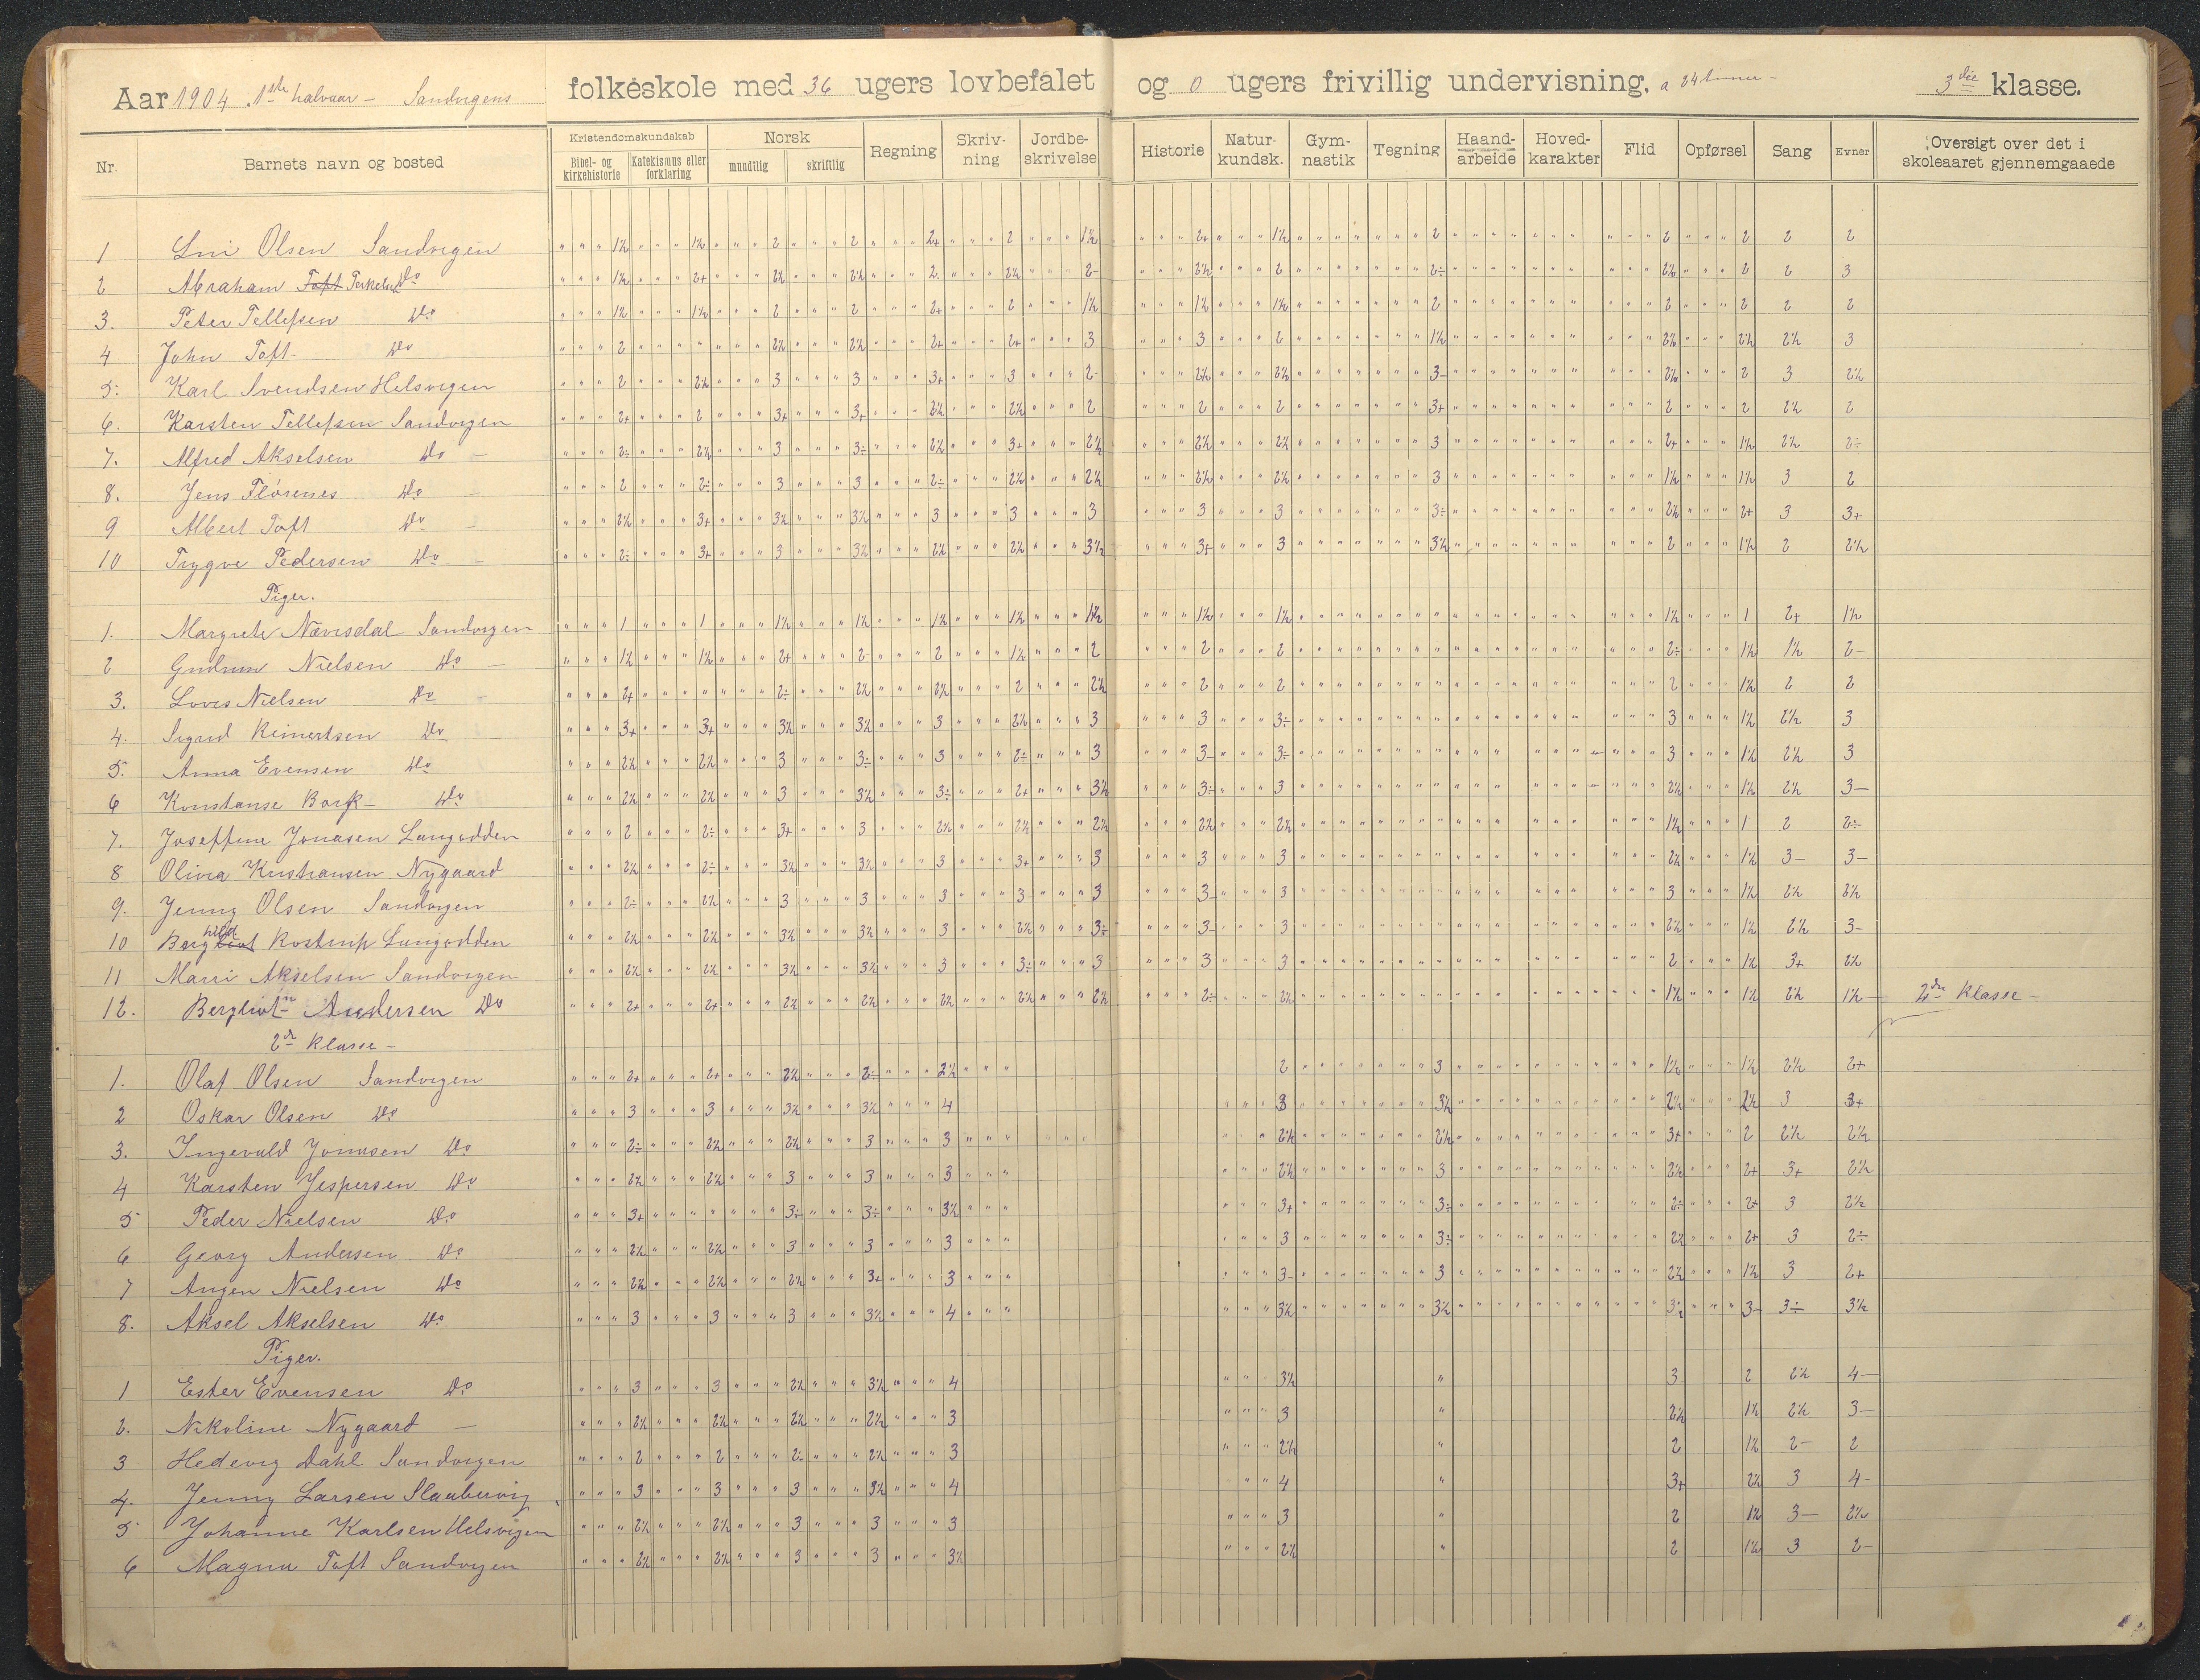 Aar 1904 1ste halvaar – Sandvigens folkeskole med 36 ugers lovbefalet og 0 ugers frivillig undervisning, a 24 timer – 3die klasse.
Nr. Barnets navn og bosted Kristendomskundskab Norsk Regning Skriv-ning Jordbe-skrivelse Historie Natur-kundsk. Gym-nastik Tegning Haand-arbeide Hoved-karakter Flid Opførsel Sang Evner Oversigt over det i skoleaaret gjennemgaaede
Bibel- og kirkehistorie Katekismus eller forklaring mundtlig skriftlig
1 Olsen Sandvigen 1½ 1½ 2 2 2+ 2 1½ 2+ 1½ 2 2 2 2 2
2 Abraham Toft Terkelsen Do 1½ 2+ 2½ 2½ 2 2½ 2- 2½ 2 2÷ 2½ 2 2 3
3. Peter Tellefsen Do 1½ 1½ 2 2 2+ 2 1½ 1½ 1½ 2 2 2 2 2
4 John Toft – Do 2 2½ 2½ 2+ 2+ 3 3 2 1½ 2½ 2½ 2½ 3
5. Karl Svendsen Helsvigen 2 2½ 3 3 3+ 3 2- 2½ 2½ 3- 2½ 2 3 2½
6. Karsten Tellefsen Sandvigen 2+ 2 3+ 3+ 2½ 2½ 2 2 2 3+ 2 2 2½ 2
7. Alfred Akselsen Do 2÷ 2½ 3 3÷ 2½ 3+ 2½ 2½ 2½ 3 2+ 1½ 2½ 2÷
8. Jens Flørenes Do 2 2÷ 3 3 2÷ 2½ 2½ 2½ 2½ 3 1½ 1½ 3 2
9 Albert Toft Do 2½ 3+ 3½ 3½ 3 3 3 3 3 3÷ 2½ 2+ 3 3+
10 Trygve Pedersen Do 2÷ 3+ 3 3½ 2½ 2½ 3½ 3+ 3 3½ 2 1½ 2 2½
Piger.
1. Margrete Nævesdal Sandvigen 1 1 1½ 1½ 1½ 1½ 1½ 1½ 1½ 1½ 1 2+ 1½
2 Gudrun Nielsen Do 1½ 1½ 2+ 2 2 1½ 2 2 2 2÷ 1½ 1½ 2-
3. Lovis Nielsen Do 2+ 2÷ 2½ 2½ 2 2½ 2 2 2 1½ 2 2
4. Sigrid Reinertsen Do 3+ 3+ 3½ 3½ 3 2½ 3 3 3÷ 3 1½ 2½ 3
5. Anna Evensen Do 2½ 2½ 3 3÷ 3 2÷ 3 3- 3÷ 3 1½ 2½ 3
6 Konstanse Bork – Do 2½ 2½ 3 3½ 3÷ 2+ 3½ 3÷ 3 2½ 1½ 2½ 3-
7. Joseffine Jonasen Langodden 2 2÷ 3+ 3 2½ 2½ 2½ 2½ 2½ 1½ 1 2 2÷
8 Olivia Kristiansen Nygaard 2½ 2÷ 3½ 3½ 3 3+ 3 3 3 2½ 1½ 3- 3-
9. Jenny Olsen Sandvigen 2÷ 2½ 3 3 3 3 3 3- 3 3 1½ 2½ 2½
10 Bergliot hild Rostrup Langodden 2½ 2½ 3½ 3½ 3 2½ 3÷ 3- 3 2½ 1½ 2½ 3-
11 Marri Akselsen Sandvigen 2½ 2½ 3½ 3½ 3 3÷ 3 3 3 2 1½ 3+ 2½
12. Bergliot Andersen Do 2+ 2+ 2½ 2½ 2½ 2½ 2½ 2÷ 2½ 1½ 1½ 2½ 1½ – 2den klasse –
2de klasse –
1. Olaf Olsen Sandvigen 2+ 2+ 2½ 2÷ 2½ 2 3 1½ 1½ 2½ 2+
2 Oskar Olsen Do 3 3 3½ 3½ 4 3 3½ 2½ 2½ 3 3+
3. Ingevald Jonasen Do 2÷ 2½ 2½ 3 3 2½ 2½ 3+ 2 2½ 2½
4 Karsten Jespersen Do 2½ 2½ 3 3 3 2½ 3 2½ 2+ 3+ 2½
5 Peder Nielsen Do 3+ 3÷ 3÷ 3½ 3+ 3÷ 2÷ 2+ 3 2½
6 Georg Andersen Do 2½ 2½ 3 3 3 3 3÷ 2½ 2+ 3 2÷
7 Angen Nielsen Do 2½ 2½ 2½ 3+ 3 3- 3 2½ 1½ 3 2+
8. Aksel Akselsen Do 3 3 3 3½ 4 3½ 3½ 3- 3÷ 3½
Piger.
1 Ester Evensen Do 3 3 2½ 3½ 4 3½ 3 2 2½ 4-
2. Nikoline Nygaard – 2½ 2½ 2½ 2½ 3 3 2½ 1½ 2½ 3-
3 Hedevig Dahl Sandvigen 2 2 2÷ 2½ 3 2½ 2 1½ 2- 2
4. Jenny Larsen Slaubervig 3 3 3 3½ 4 4 3+ 2½ 3 4-
5 Johanne Karlsen Helsvigen 2½ 2½ 3 3 3 3 2 1½ 3- 2½
6 Magna Toft Sandvigen 2½ 2½ 3 3 3½ 2½ 2 1½ 3 2-